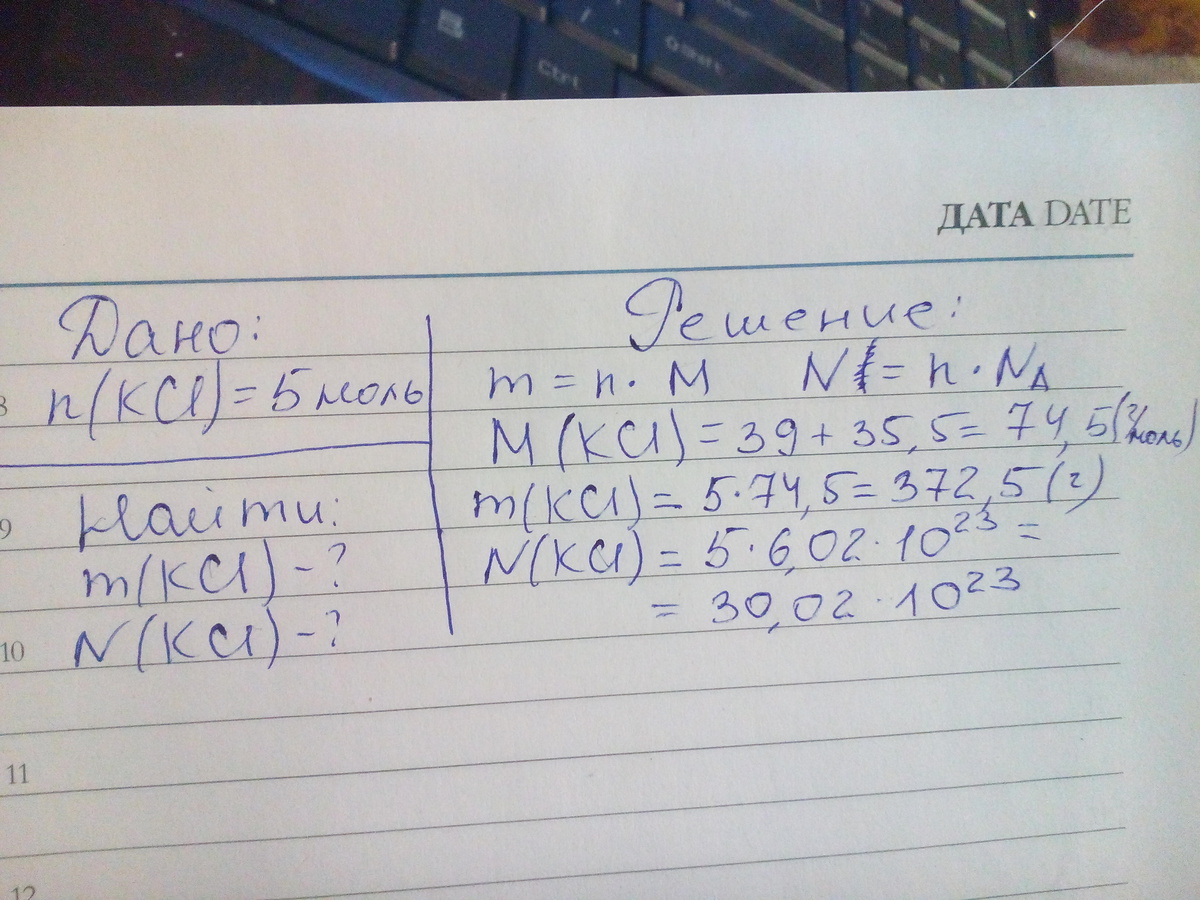 Ctrl
Shift
ДАТА DATE
Дано:
8 n(KCl)=5 моль
9 Найти:
m(KCl)-?
10 N(KCl)-?
Решение:
m = n · M N = n · NA
M(KCl)=39+35,5=74,5(г/моль)
m(KCl)=5·74,5=372,5(г)
N(KCl)=5·6,02·10²³=
=30,02·10²³
11
12